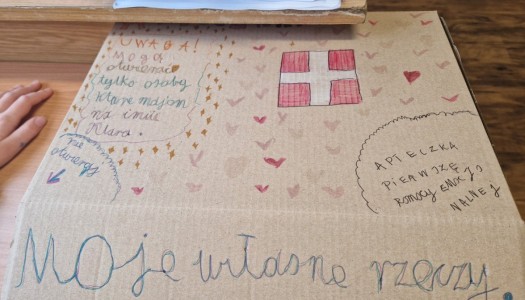 UWAGA!
Mogą
otwierać
tylko osoby
które mają
na imie
Klara.
nie
otwieraj
APTECZKA
PIERWSZE
POMOCY EMOCJO
NALNEJ
Moje własne rzeczy.